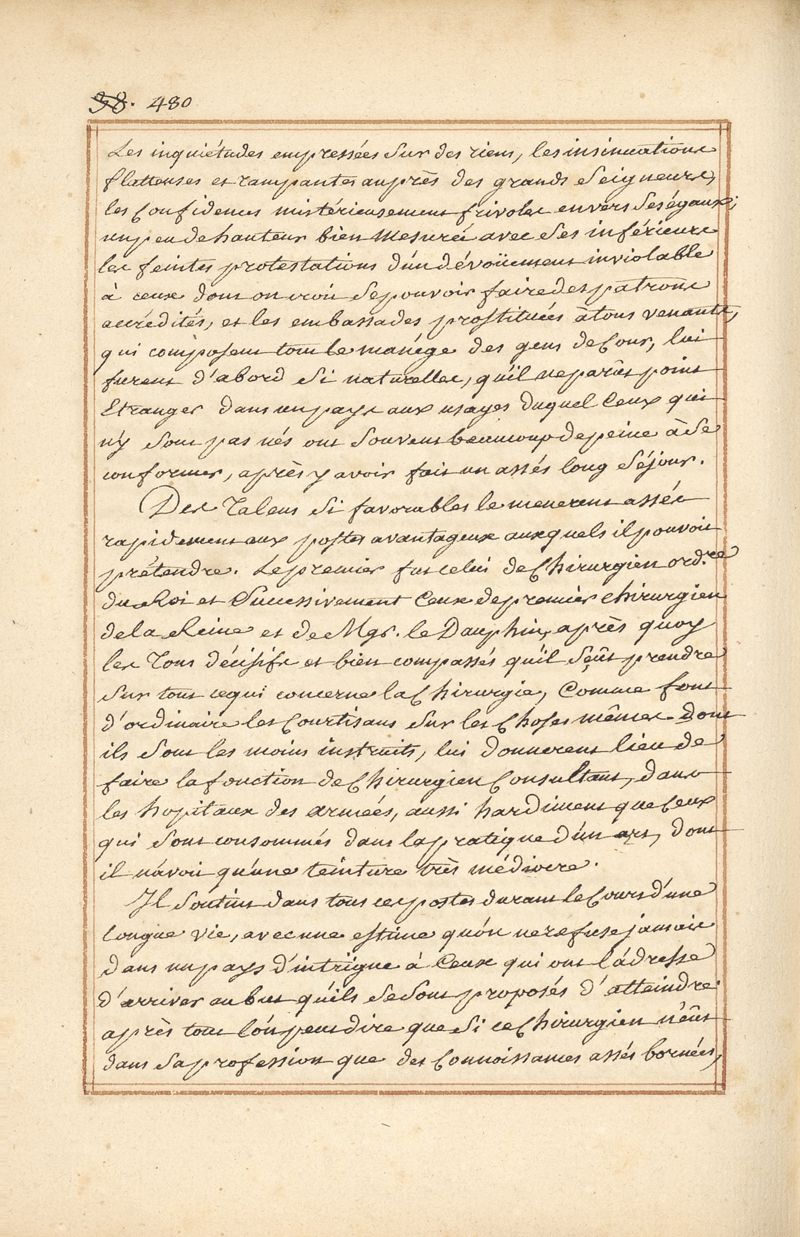 38. 480
Les inquiétudes empressées sur des riens, les insinuations
flatteuses et rampantes auprès des grands Seigneurs,
les Confidences mistérieusement frivoles envers ses égaux;
un peu de hauteur bien Mesurée avec ses inférieurs
les feintes protestations d'un dévoüement inviolable
à ceux dont on croit se pouvoir faire des patrons
accrédités, et les embassades prostituées à tous venants,
qui composent tout le manége des gens de Cour, lui
furent d'abord si naturelles, qu'il ne parût point
Etranger dans un pays aux usages duquel Ceux qui
n'y sont pas nés ont souvent beaucoup de peine à se
conformer, après y avoir fait un assés long séjour.
Des Talens si favorables le menerent assés
rapidement aux postes avantageux auxquels il pouvoit
prétendre. Le premier fut celui de Chirurgien ord.re
du Roi et Successivement Ceux de premier chirurgien
de la Reine et de Mgr. le Dauphin, après quoy
les Tons décisifs et bien compassés qu'il sçût prendre
sur tout ce qui concerne la Chirurgie, Comme font
d'ordinaire les Courtisans sur les Choses mêmes Dont
ils sont les moins instruits, lui donnerent lieu de
faire la fonction de Chirurgien Consultant, dans
les hopitaux des armées, aussi hardiment que Ceux
qui sont consommés dans la pratique d'un art, dont
il n'avoit qu'une teinture très médiocre.
Il soutint dans tous ces postes durant le Cours d'une
longue vie, avec une estime qu'on ne refuse jamais
dans un pays d'intrigue à Ceux qui ont l'adresse
d'arriver au but qu'ils se sont proposés d'atteindre.
après tout l'on peut dire que si ce Chirurgien n'eût
dans sa profession que des Connoissances assés bornées,